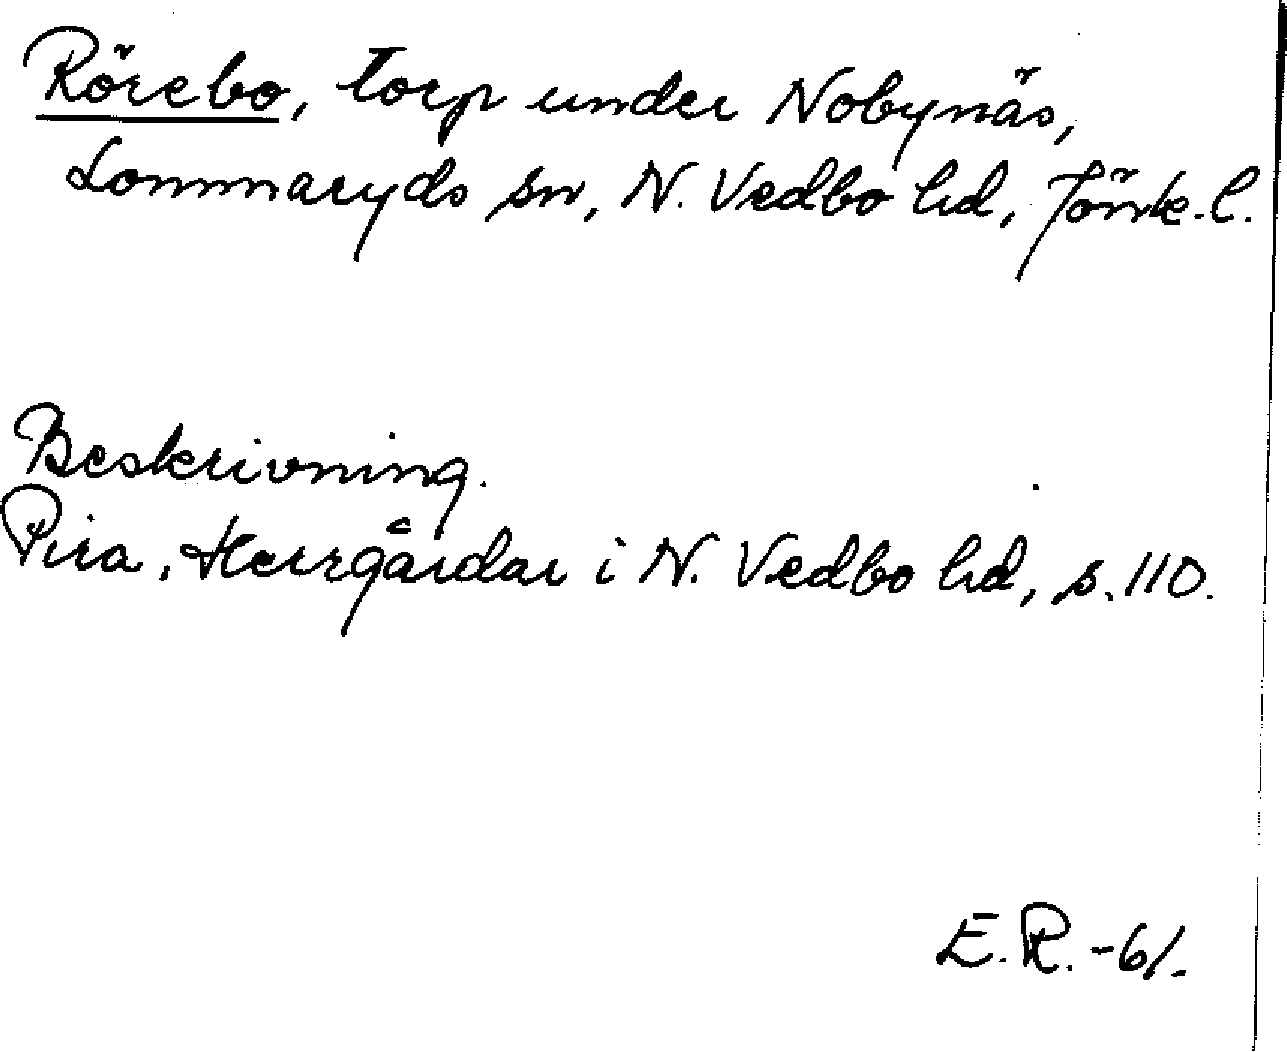 Rörebo, torp under Nobynäs,
Lommaryds sn, N. Vedbo hd, Jönk. l.
Beskrivning.
Pira, Herrgårdar i N. Vedbo hd, s. 110.
E.R. -61.